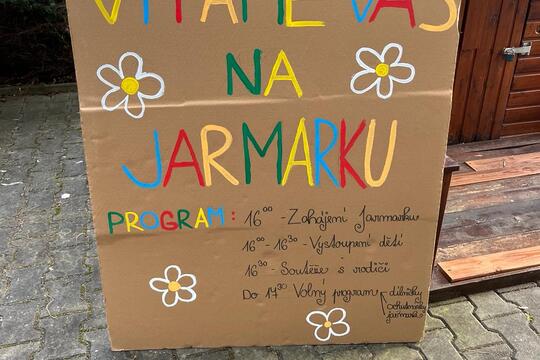 VÍTÁME VÁS
NA
JARMARKU
PROGRAM: 16⁰⁰ - Zahájení Jarmarku
16⁰⁰ - 16³⁰ - Výstoupení dětí
16³⁰ - Soutěže s rodiči
Do 17³⁰ Volný program
dílničky
ochutnávky
jarmark